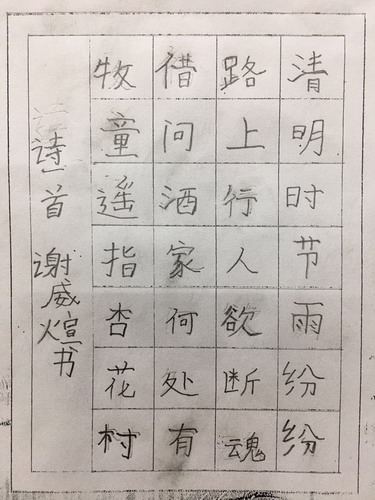 清明时节雨纷纷
路上行人欲断魂
借问酒家何处有
牧童遥指杏花村
诗一首 谢威煊书